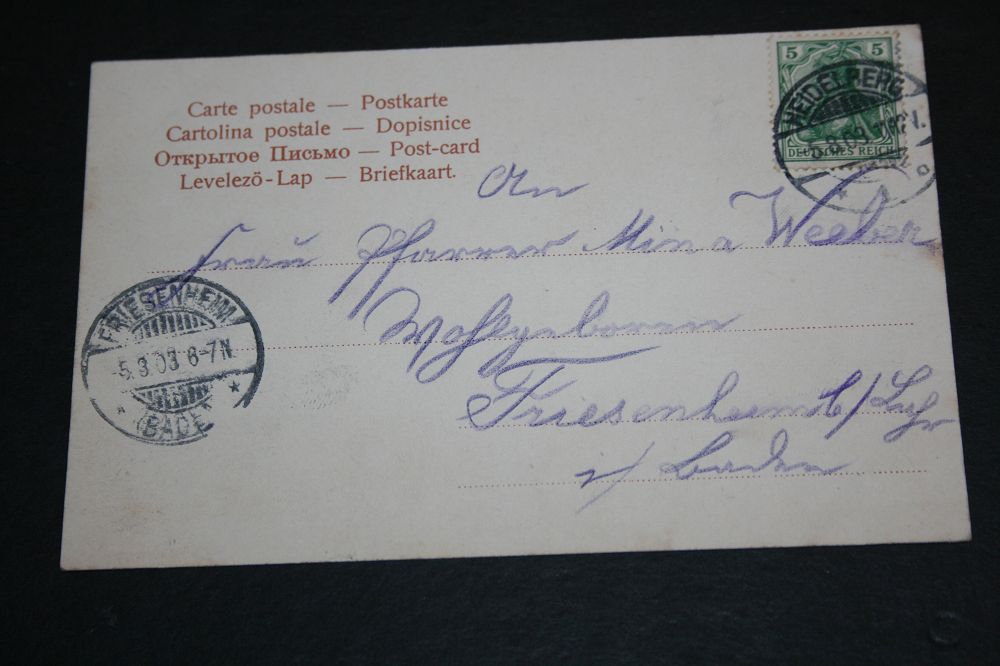 Carte postale — Postkarte
Cartolina postale — Dopisnice
Открытое Письмо — Post-card
Levelező-Lap — Briefkaart.
5 5
DEUTSCHES REICH
HEIDELBERG
An
Frau Pfarrer Mina Weeber
Wohlgeboren
Friesenheim b/ Lahr
i/ Baden
FRIESENHEIM
5.3.03 6-7N.
(BADEN)